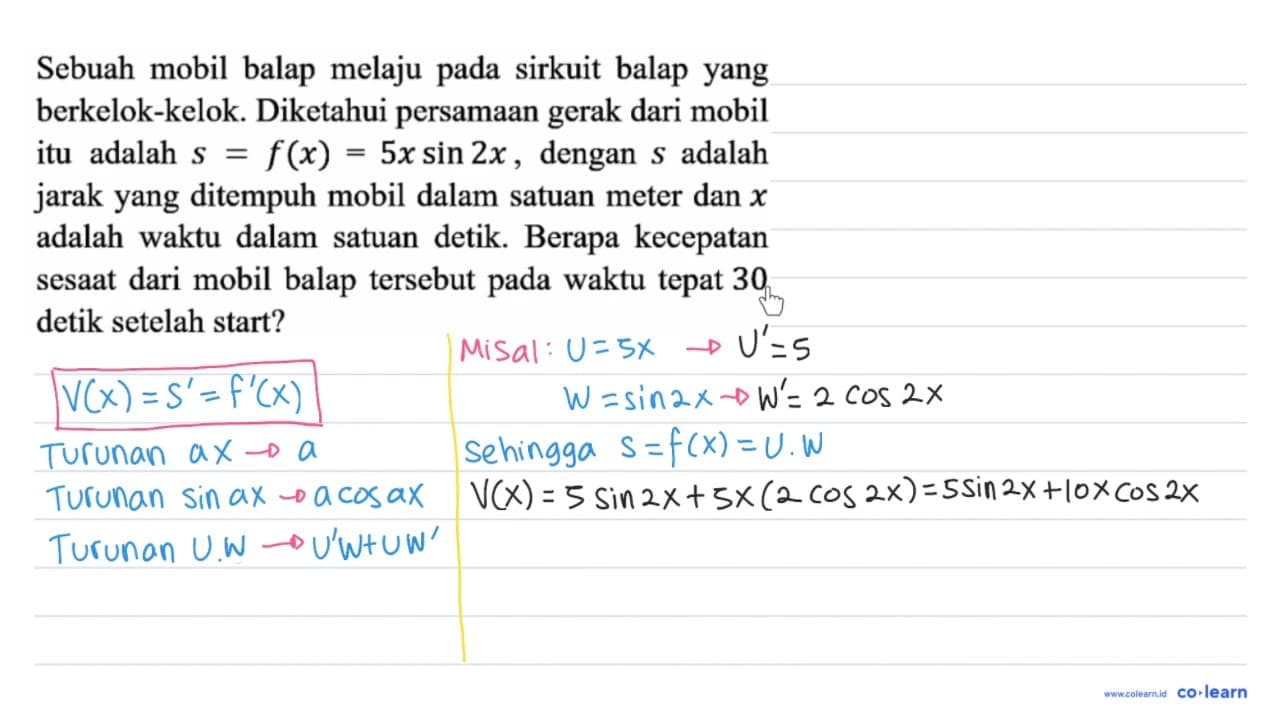 Sebuah mobil balap melaju pada sirkuit balap yang
berkelok-kelok. Diketahui persamaan gerak dari mobil
itu adalah s = f(x) = 5x sin 2x, dengan s adalah
jarak yang ditempuh mobil dalam satuan meter dan x
adalah waktu dalam satuan detik. Berapa kecepatan
sesaat dari mobil balap tersebut pada waktu tepat 30
detik setelah start?
V(x) = S' = f'(x)
Turunan ax → a
Turunan sin ax → a cos ax
Turunan U.W → U'W+UW'
Misal: U = 5x → U' = 5
W = sin 2x → W' = 2 cos 2x
Sehingga S = f(x) = U.W
V(x) = 5 sin 2x + 5x (2 cos 2x) = 5 sin 2x + 10x cos 2x
www.colearn.id co·learn